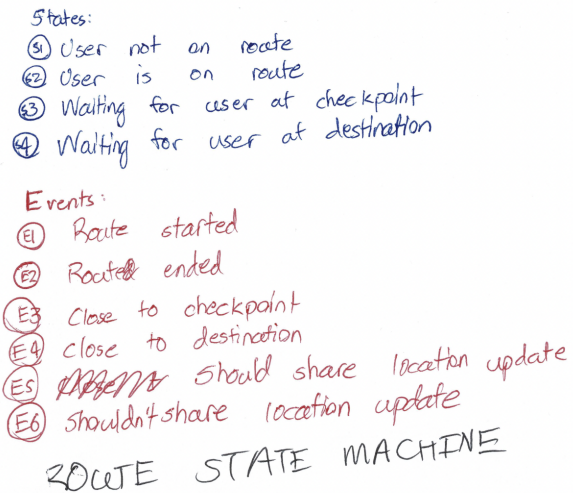 States:
S1 User not on route
S2 User is on route
S3 Waiting for user at checkpoint
S4 Waiting for user at destination
Events:
E1 Route started
E2 Route ended
E3 Close to checkpoint
E4 close to destination
E5 should share location update
E6 shouldn't share location update
ROUTE STATE MACHINE